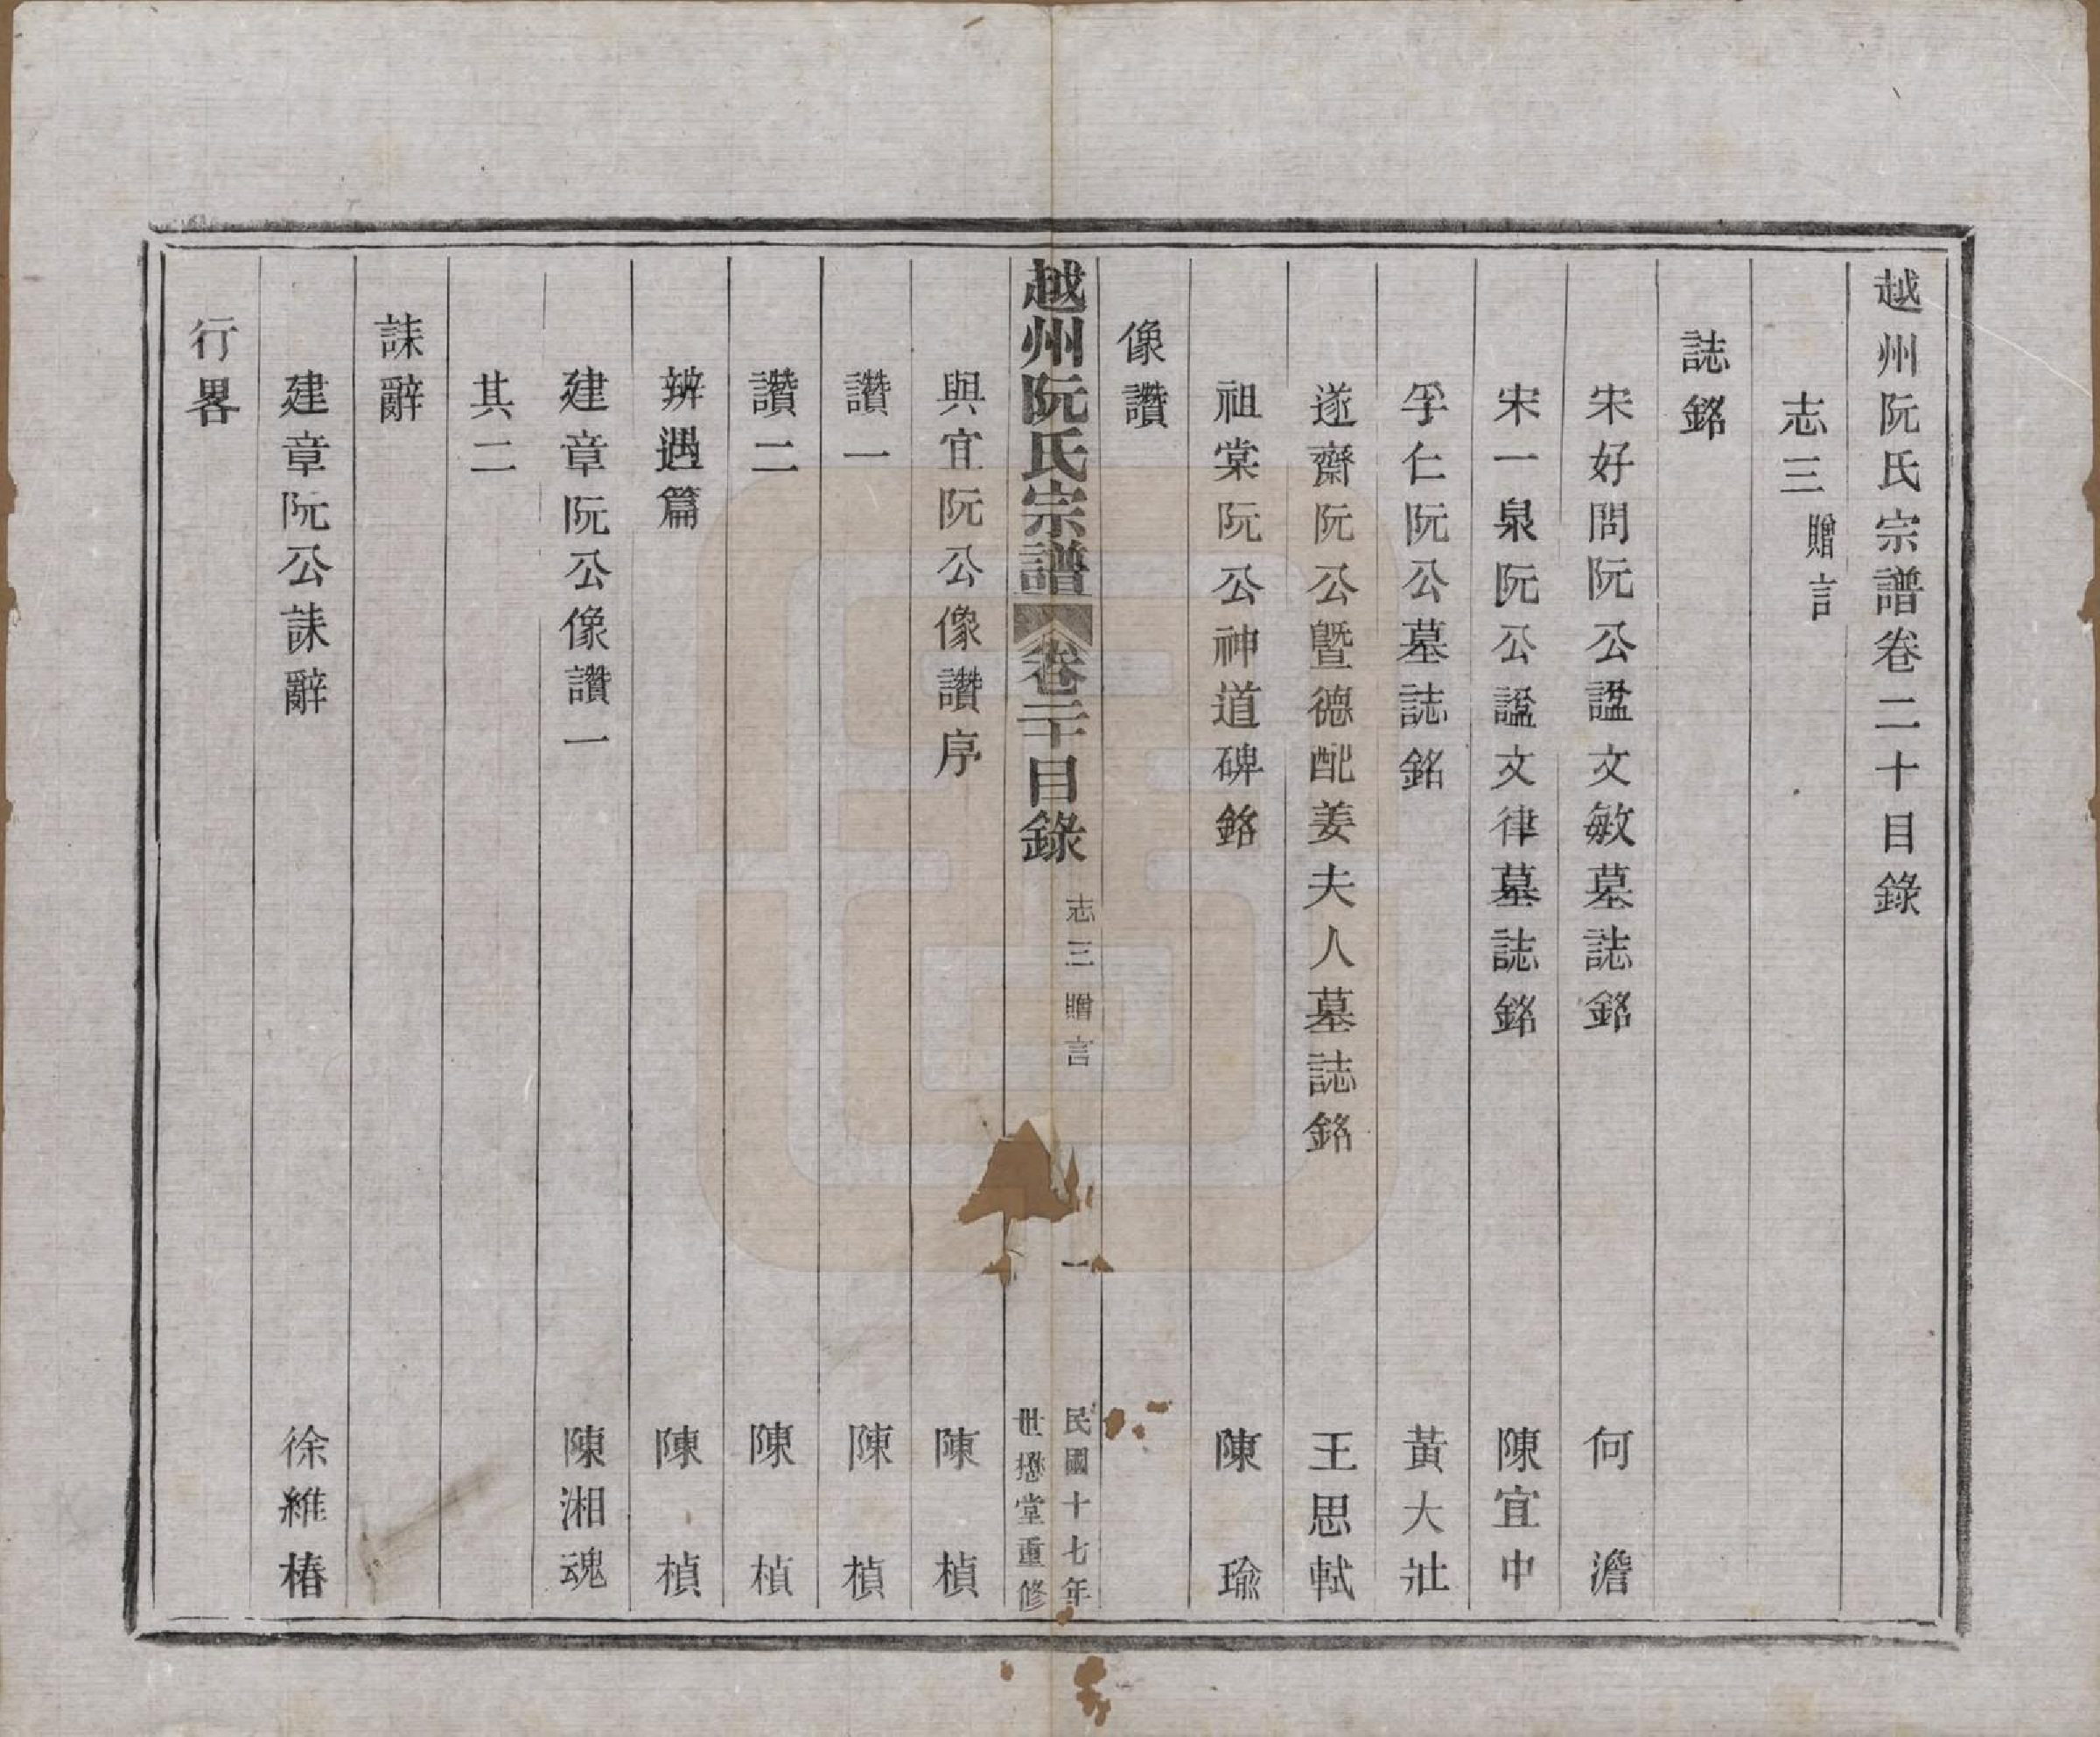 越州阮氏宗譜卷二十目錄
志三 贈言
誌銘
宋好問阮公諡文敏墓誌銘 何澹
宋一泉阮公諡文律墓誌銘 陳宜中
孚仁阮公墓誌銘 黃大壯
遂齋阮公暨德配姜夫人墓誌銘 王思軾
祖棠阮公神道碑銘 陳瑜
像讚
越州阮氏宗譜 卷二十目錄 志三 贈言 一 民國十七年 世懋堂重修
與宜阮公像讚序 陳楨
讚一 陳楨
讚二 陳楨
辨遇篇 陳楨
建章阮公像讚一 陳湘魂
其二
誄辭
建章阮公誄辭 徐維椿
行畧